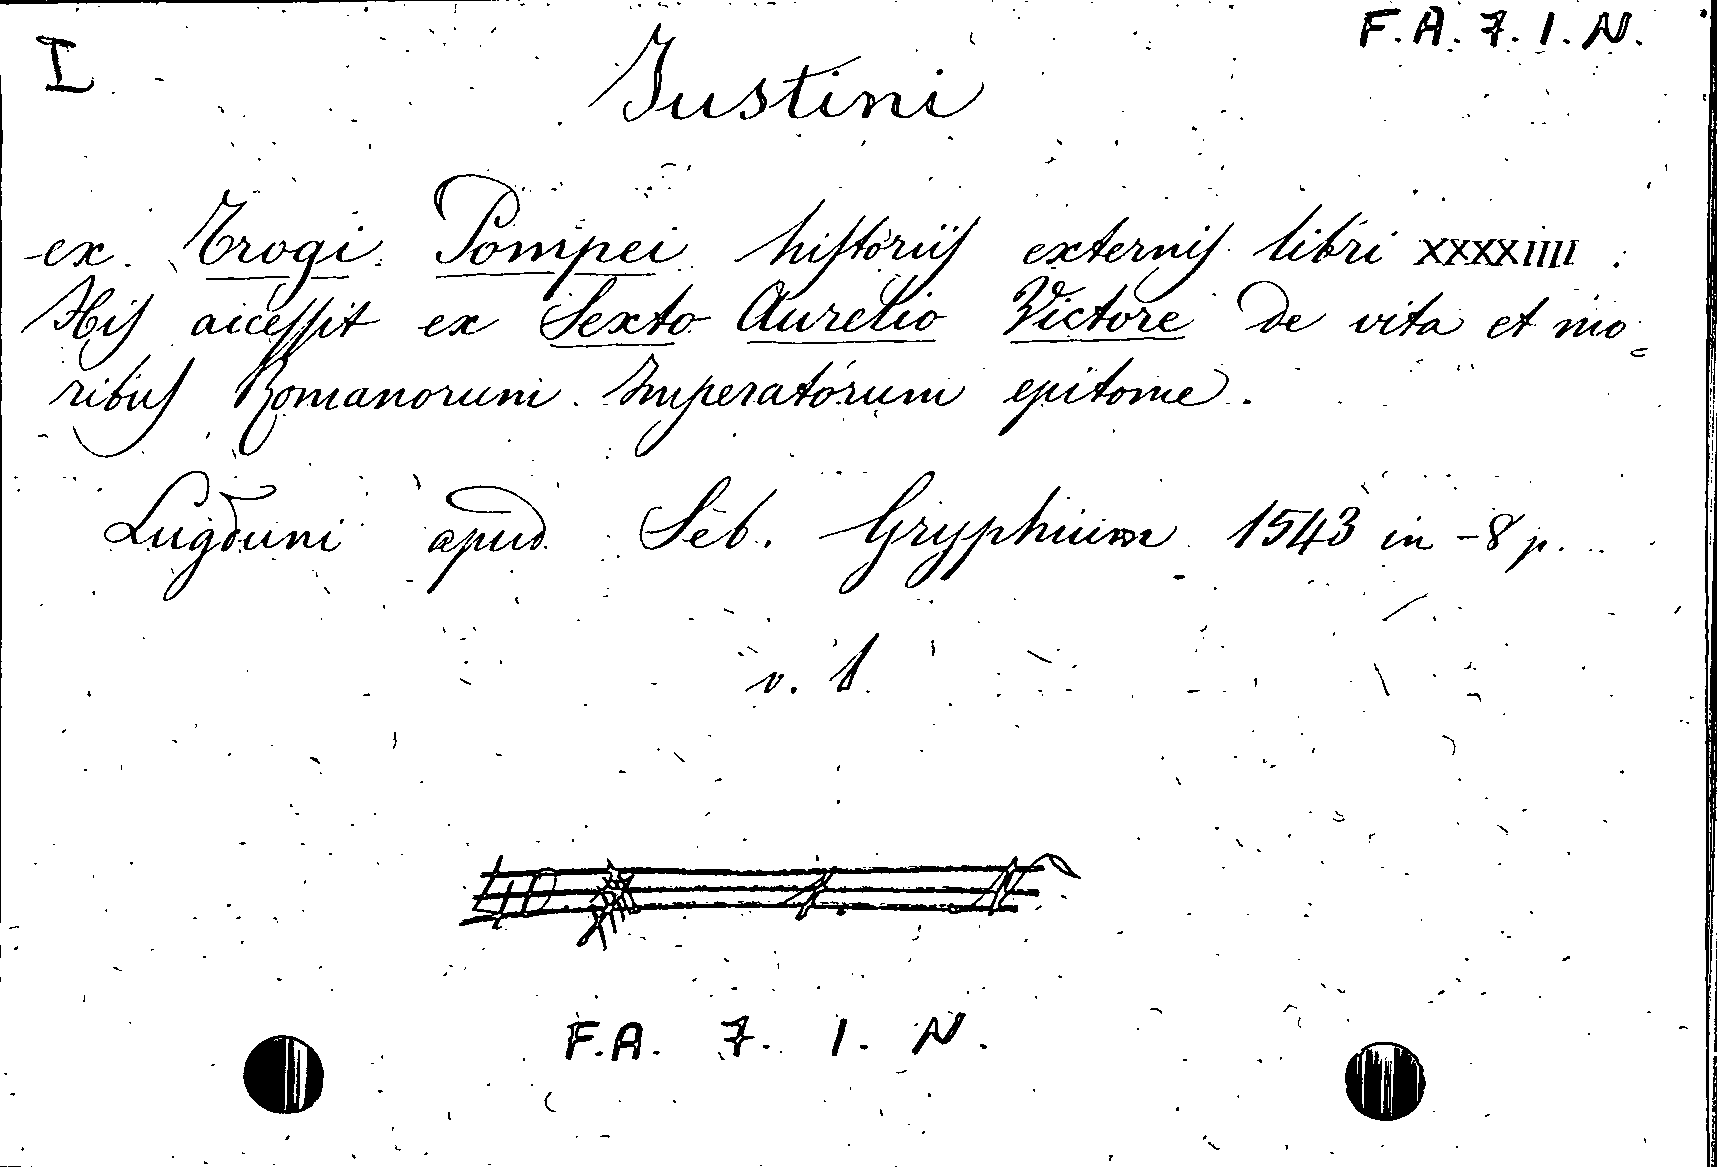 I
F.A. 7. I. N.
Justini
ex Trogi Pompei historiis externis libri XXXXIIII.
His accessit ex Sexto Aurelio Victore de vita et mo=
ribus Romanorum Imperatorum epitome.
Lugduni apud Seb. Gryphium 1543 in-8 p.
v. 1.
F.A. 7. I. N.